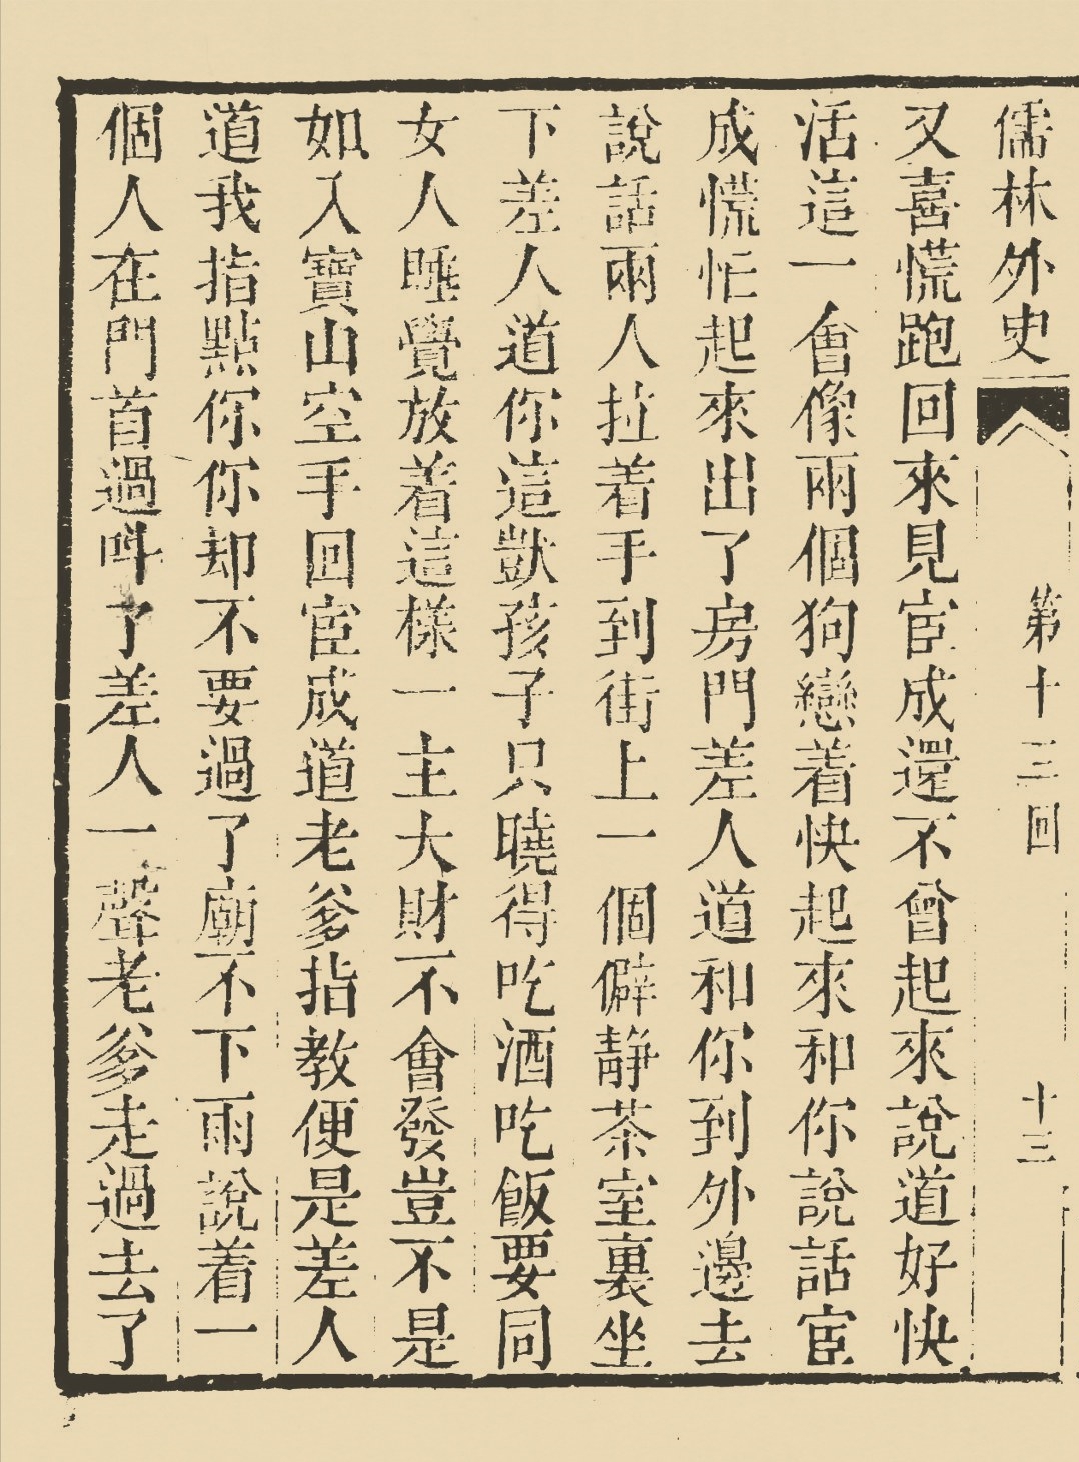 儒林外史 第十三回 十三
又喜慌跑回來見宦成還不曾起來說道好快
活這一會像兩個狗戀着快起來和你說話宦
成慌忙起來出了房門差人道和你到外邊去
說話兩人拉着手到街上一個僻靜茶室裏坐
下差人道你這獃孩子只曉得吃酒吃飯要同
女人睡覺放着這樣一主大財不會發豈不是
如入寶山空手回宦成道老爹指教便是差人
道我指點你你却不要過了廟不下雨說着一
個人在門首過呌了差人一聲老爹走過去了